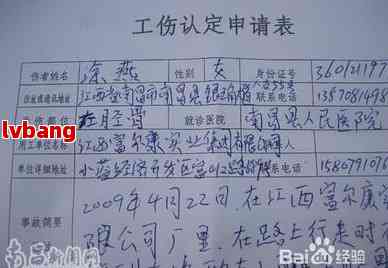 工伤认定申请表
伤者姓名 涂燕 性别 女 身份证号 360121197
住址或通讯地址 江西省南昌市南昌县 联系电话 1357081498
工伤部位 左胫骨 就诊医院 南昌县人民医院
用工单位名称 江西富尔康实业集团有限 联系人
单位详细地址 小蓝经济开发区富山 联系电话 15807910
事故简要 2009年4月22日,在江西富尔康实
限公司厂里,在路上行走时
lvbang
南昌新闻网
Bai 百度经验